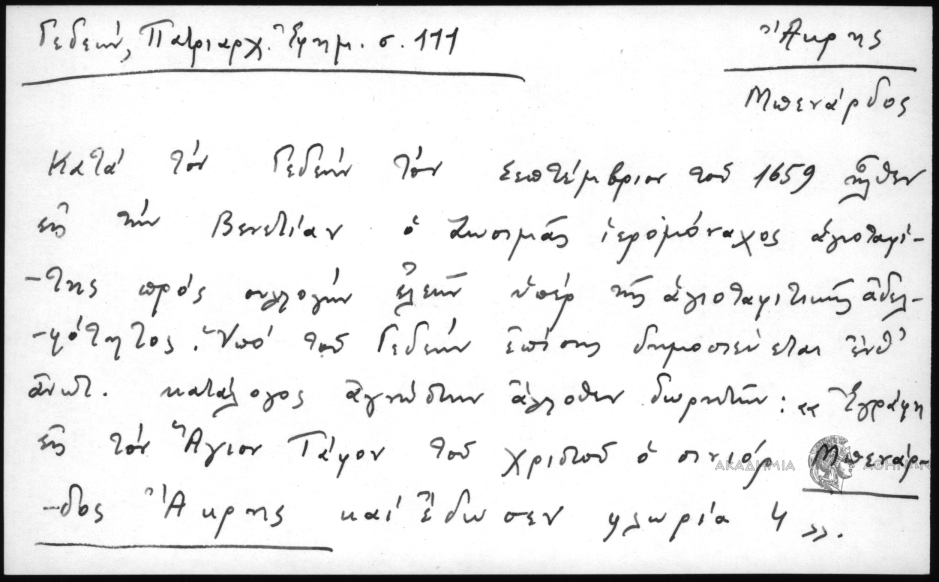 Γεδεών, Πατριαρχ. Ἐφημ. σ. 111
Ἄκρης
Μπενάρδος
Κατά τόν Γεδεών τόν Σεπτέμβριον τοῦ 1659 ἦλθεν
εἰς τήν Βενετίαν ὁ Ζωσιμᾶς ἱερομόναχος ἁγιοταφί-
-της πρός συλλογήν ἐλεῶν ὑπέρ τῆς ἁγιοταφιτικῆς ἀδελ-
-φότητος. Ὑπό τοῦ Γεδεών ἐπίσης δημοσιεύεται ἔνθ'
ἀνωτ. κατάλογος ἀγνώστων ἄλλοθεν δωρητῶν: «Ἐγράφη
εἰς τόν Ἅγιον Τάφον τοῦ Χριστοῦ ὁ σινιόρ Μπενάρ-
-δος Ἄκρης καί ἔδωσεν φλωρία 4».
ΑΚΑΔΗΜΙΑ ΑΘΗΝΩΝ